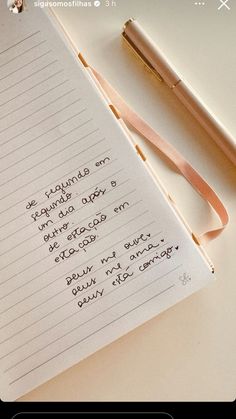 sigasomosfilhas 3 h
de segundo em
segundo.
um dia após o
outro.
de estação em
estação.
Deus me ouve.
Deus me ama.
Deus está comigo.